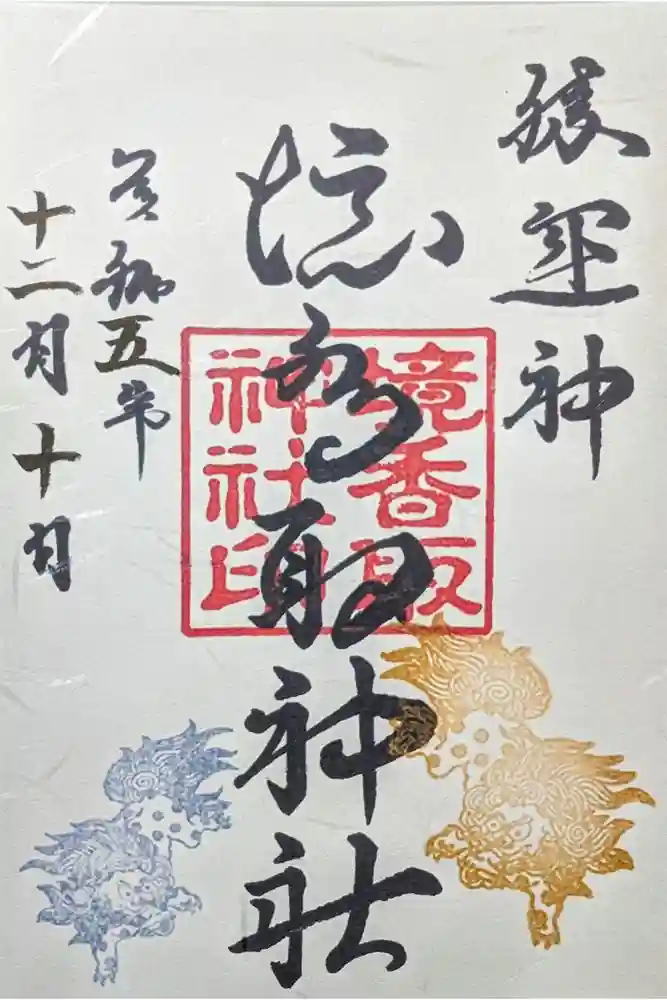 強運神
境香取神社
境香取
神社印
令和五年
十二月十日